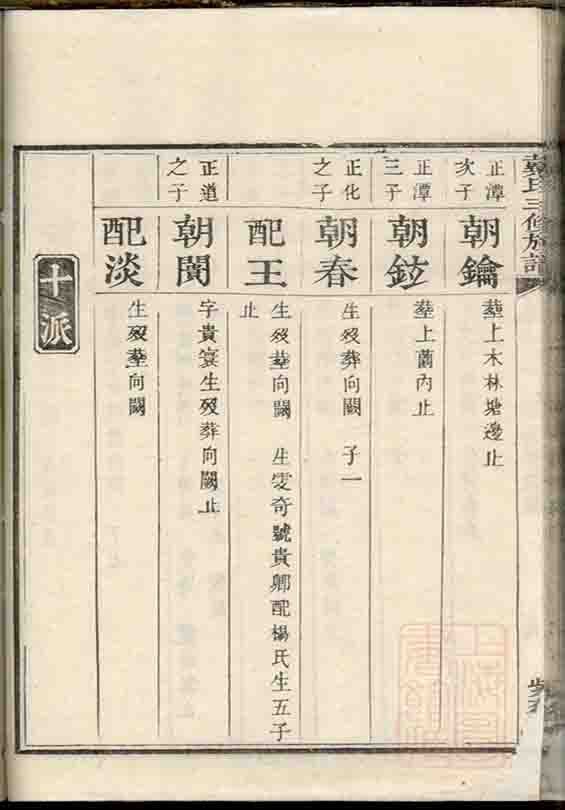 戴氏三修族譜
正潭
次子
朝鑰
塟上木林塘邊止
正潭
三子
朝鉉
塟上菌內止
正化
之子
朝春
生歿葬向闕 子一
配王
生歿塟向闕 生雯奇號貴卿配楊氏生五子
止
正道
之子
朝閩
字貴寰生歿葬向闕止
配淡
生歿塟向闕
十派